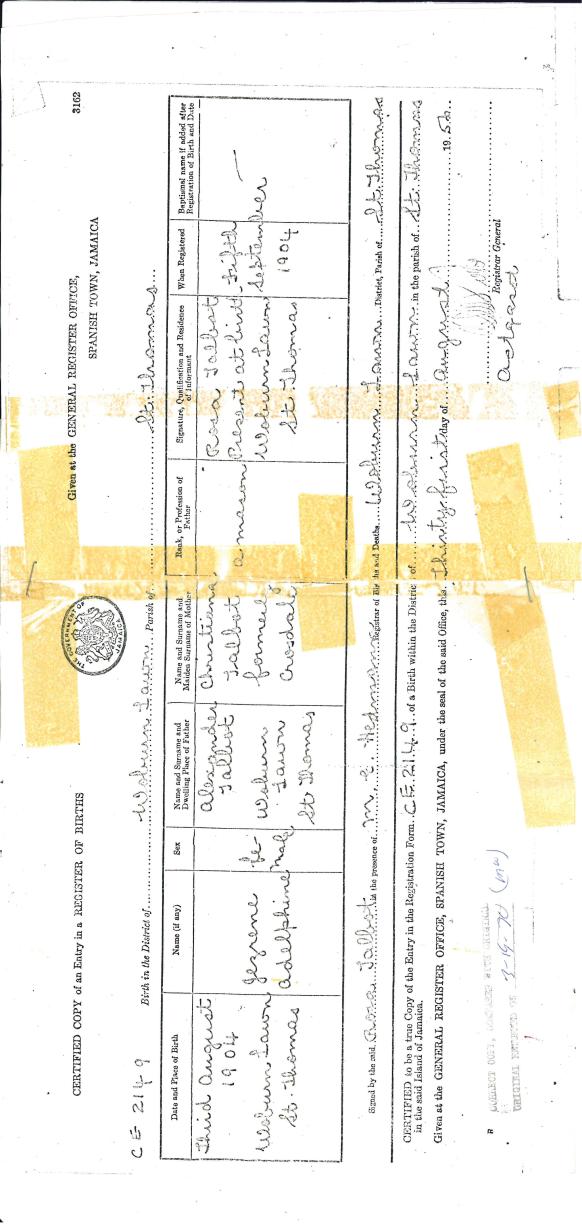 CERTIFIED COPY of an Entry in a REGISTER OF BIRTHS
Given at the GENERAL REGISTER OFFICE,
SPANISH TOWN, JAMAICA
3162
THE GOVERNMENT OF JAMAICA
CE 2149
Birth in the District of Woburn Lawn Parish of St. Thomas
Date and Place of Birth
Name (if any)
Sex
Name and Surname and Dwelling Place of Father
Name and Surname and Maiden Surname of Mother
Rank, or Profession of Father
Signature, Qualification and Residence of Informant
When Registered
Baptismal name if added after Registration of Birth and Date
Third August
1904
Woburn Lawn
St. Thomas
Jezrene
Adelphine
fe-
male
Alexander
Talbot
Woburn
Lawn
St Thomas
Christiena
Talbot
formerly
Crosdale
a mason
Rosa Talbot
Present at birth
Woburn Lawn
St. Thomas
Fifth
September
1904
Signed by the said Rosa Talbot in the presence of M. E. Registrar of Births and Deaths Woburn Lawn District, Parish of St Thomas
CERTIFIED to be a true Copy of the Entry in the Registration Form CE 2149 of a Birth within the District of Woburn Lawn in the parish of St. Thomas
in the said Island of Jamaica.
Given at the GENERAL REGISTER OFFICE, SPANISH TOWN, JAMAICA, under the seal of the said Office, this thirty first day of August 1956
Registrar General
B
CORRECT COPY, COMPARED WITH ORIGINAL
ORIGINAL